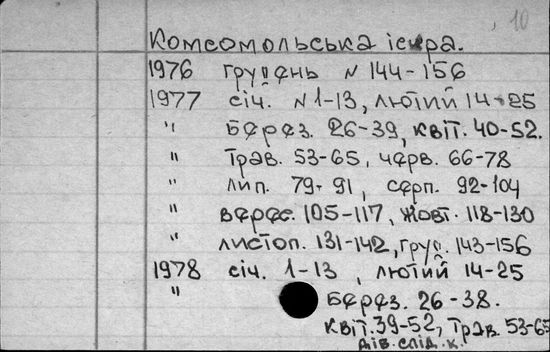 10
Комсомольська іскра.
1976 грудень N 144-156
1977 січ. N 1-13, лютий 14-25
" Берез. 26-39, квіт. 40-52.
" Трав. 53-65, черв. 66-78
" лип. 79-91, серп. 92-104
" верес. 105-117, жовт. 118-130
" листоп. 131-142, груд. 143-156
1978 січ. 1-13, лютий 14-25
" Берез. 26-38.
квіт. 39-52, Трав. 53-65
див. слід. к.